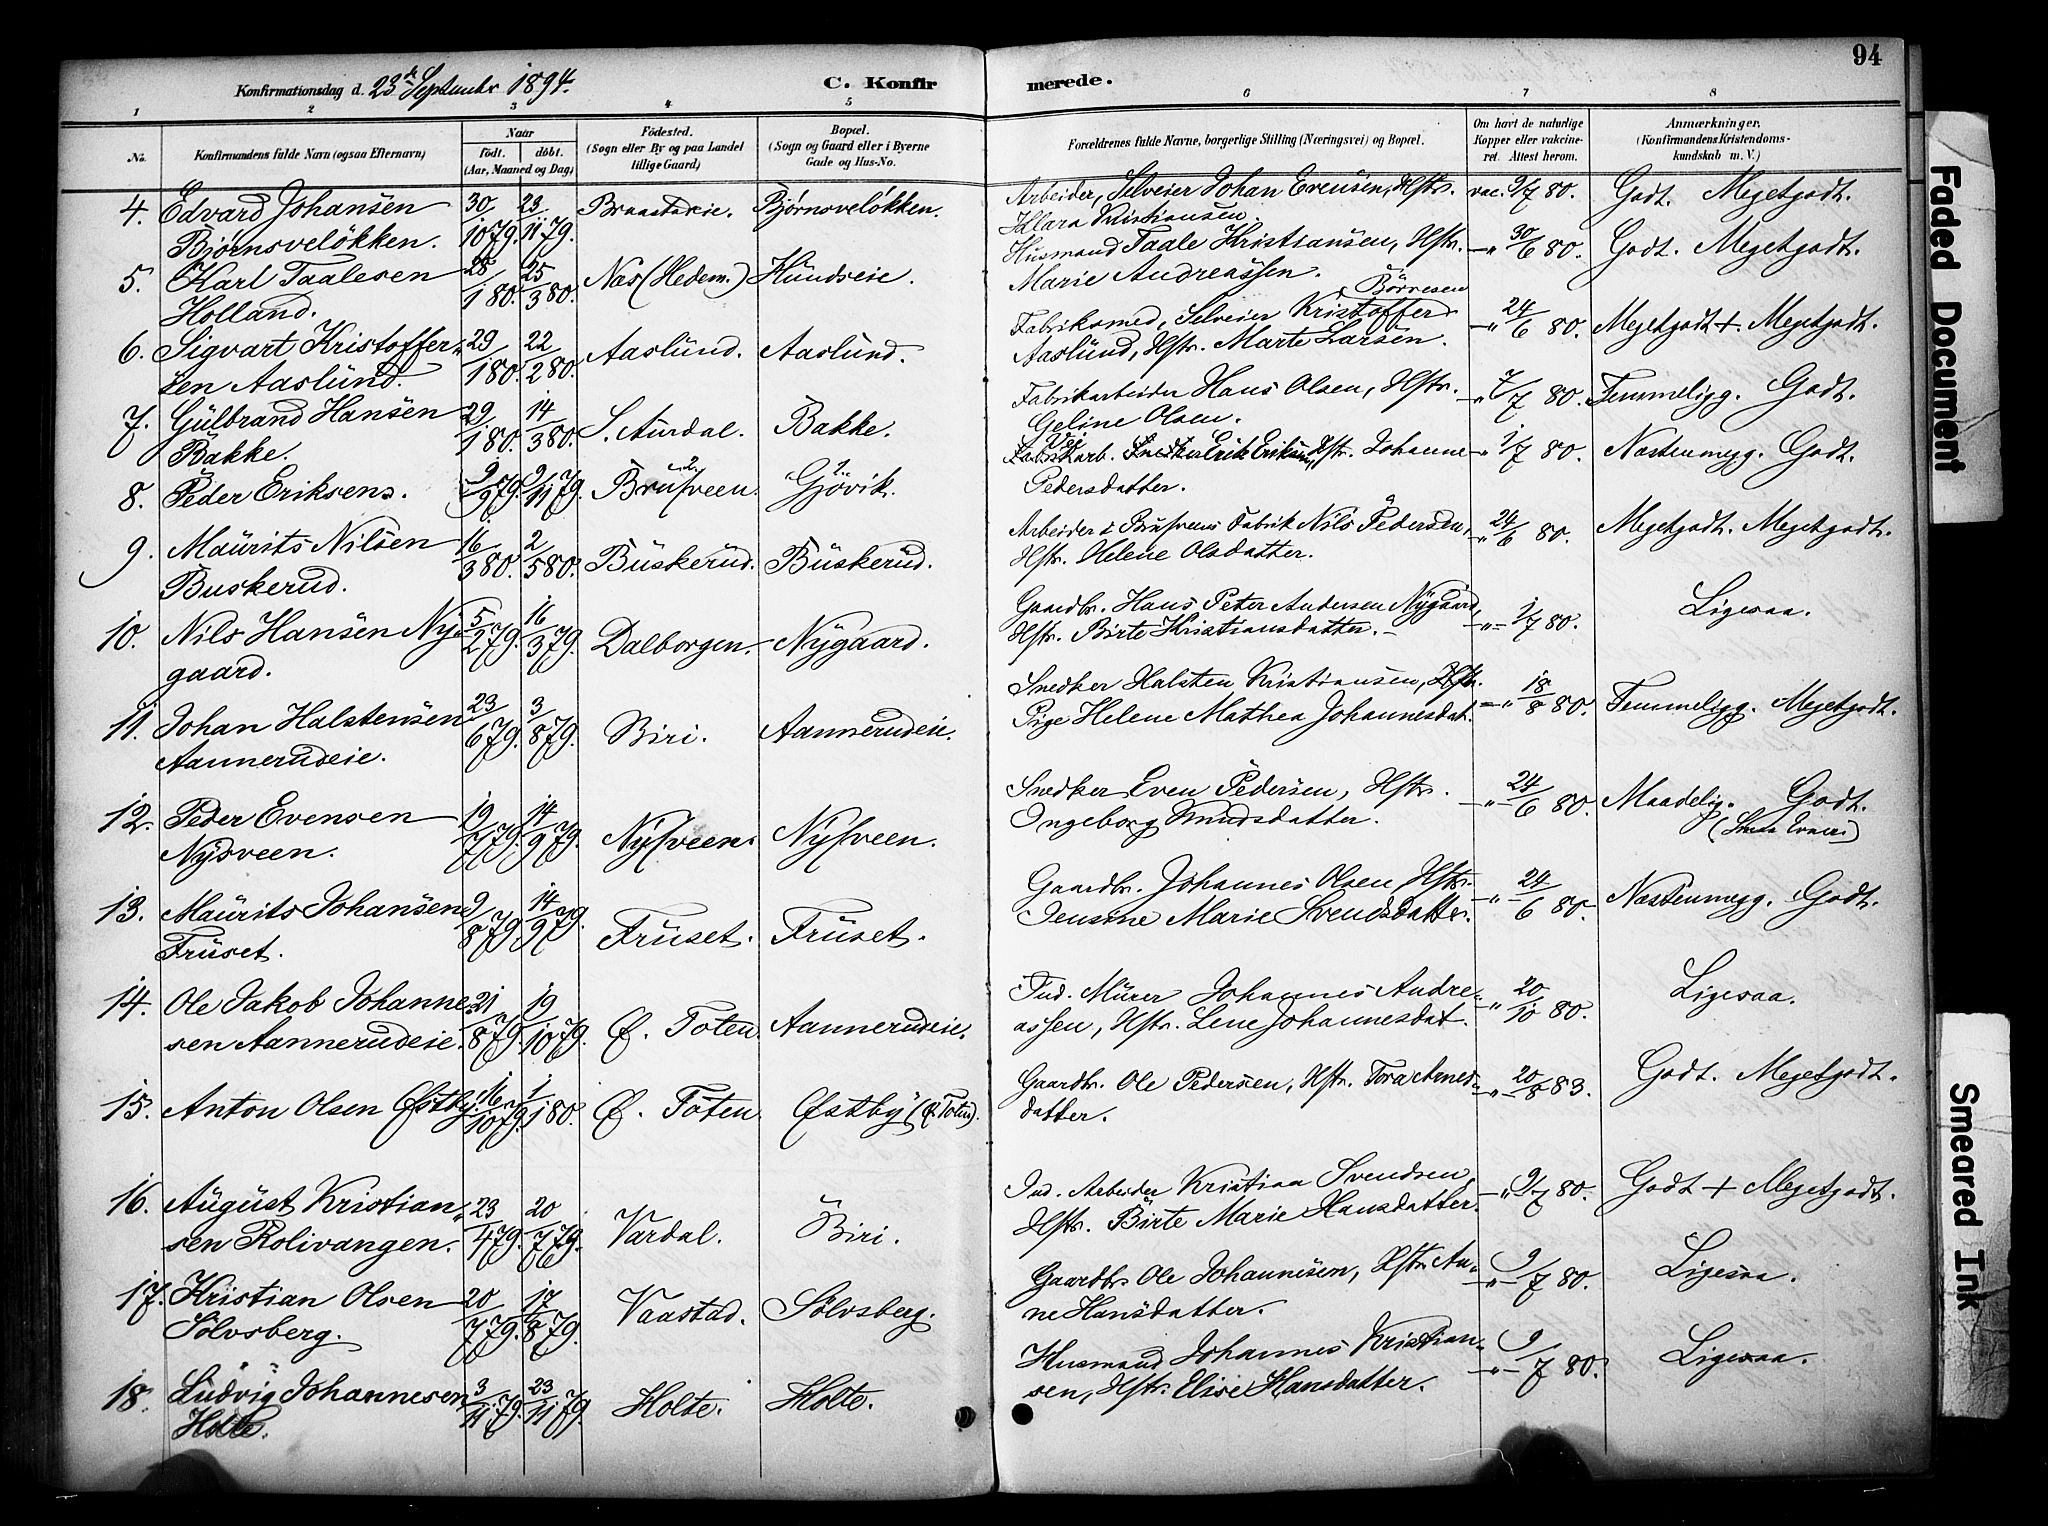 94
Konfirmationsdag d. 23de September 1894.
C. Konfirmerede.
1 2 3 4 5 6 7 8
No.
Konfirmandens fulde Navn (ogsaa Efternavn)
Naar
født. døbt.
(Aar, Maaned og Dag)
Fødested.
(Sogn eller By og paa Landet
tillige Gaard)
Bopæl.
(Sogn og Gaard eller i Byerne
Gade og Hus-No.
Forældrenes fulde Navne, borgerlige Stilling (Næringsvei) og Bopæl.
Om havt de naturlige
Kopper eller vakcine-
ret. Attest herom.
Anmærkninger,
(Konfirmandens Kristendoms-
kundskab m. V.)
4. Edvard Johansen 30/10 79. 23/11 79. Braastadeie. Bjørnsveløkken. Arbeider, Selveier Johan Evensen, Hstr. vac. 9/7 80. Godt. Megetgodt.
Bjørnsveløkken. Klara Kristiansen.
5. Karl Taalesen 28/1 80. 25/3 80. Næs (Hedem.) Hundseie. Husmand Taale Kristiansen, Hstr. -"- 30/6 80. Godt. Megetgodt.
Holland. Marie Andreassen.
6. Sigvart Kristoffer- 29/1 80. 22/2 80. Aaslund. Aaslund. Fabriksmed, Selveier Kristoffer Børresen -"- 24/6 80. Megetgodt + Megetgodt.
sen Aaslund. Aaslund, Hstr. Marte Larsen.
7. Gulbrand Hansen 29/1 80. 14/3 80. S. Aurdal. Bakke. Fabrikarbeider Hans Olsen, Hstr. -"- 7/7 80. Temmeligg. Godt.
Bakke. Geline Olsen.
8. Peder Eriksens. 9/9 79. 9/11 79. Brusveen. Gjøvik. Vei arb. Erik Eriksen, Hstr. Johanne -"- 1/7 80. Næstenmegg. Godt.
Pedersdatter.
9. Maurits Nilsen 16/3 80. 2/5 80. Buskerud. Buskerud. Arbeider i Brusveens Fabrik Nils Pedersen, -"- 24/6 80. Megetgodt. Megetgodt.
Buskerud. Hstr. Helene Olsdatter.
10. Nils Hansen Ny- 5/2 79. 16/3 79. Dalborgen. Nygaard. Gaardbr. Hans Peter Andersen Nygaard, -"- 1/7 80. Ligesaa.
gaard. Hstr. Birte Kristiansdatter. -
11. Johan Halstensen 23/6 79. 3/8 79. Biri. Aannerudeie. Snedker Halsten Kristiansen, Hstr. -"- 18/8 80. Temmeligg. Megetgodt.
Aannerudeie. Pige Helene Mathea Johannesdat.
12. Peder Evensen 19/7 79. 14/9 79. Nysveen. Nysveen. Snedker Even Pedersen, Hstr. -"- 24/6 80. Maadelig. Godt.
Nysveen. Ingeborg Knudsdatter.
13. Maurits Johansen 9/8 79. 14/9 79. Fruset. Fruset. Gaardbr. Johannes Olsen, Hstr. -"- 24/6 80. Næstenmegg. Godt.
Fruset. Jensine Marie Svendsdatter.
14. Ole Jakob Johanne- 21/8 79. 19/10 79. Ø. Toten. Aannerudeie. Ind. Murer Johannes Andre- -"- 20/10 80. Ligesaa.
sen Aannerudeie. assen, Hstr. Lene Johannesdat.
15. Anton Olsen Østby. 16/10 79. 1/1 80. Ø. Toten. Østby (Ø. Toten). Gaardbr. Ole Pedersen, Hstr. Tora Arnes- -"- 20/8 83. Godt. Megetgodt.
datter.
16. August Kristian- 23/4 79. 20/7 79. Vardal. Biri. Ind. Arbeider Kristian Svendsen, -"- 9/7 80. Godt + Megetgodt.
sen Rolivangen. Hstr. Birte Marie Hansdatter.
17. Kristian Olsen 20/7 79. 17/8 79. Vaastad. Sølvsberg. Gaardbr. Ole Johannesen, Hstr. An- -"- 9/7 80. Ligesaa.
Sølvsberg. ne Hansdatter.
18. Ludvig Johannesen 3/11 79. 23/11 79. Holte. Holte. Husmand Johannes Kristian- -"- 9/7 80. Ligesaa.
Holte. sen, Hstr. Elise Hansdatter.
Faded Document
Smeared Ink